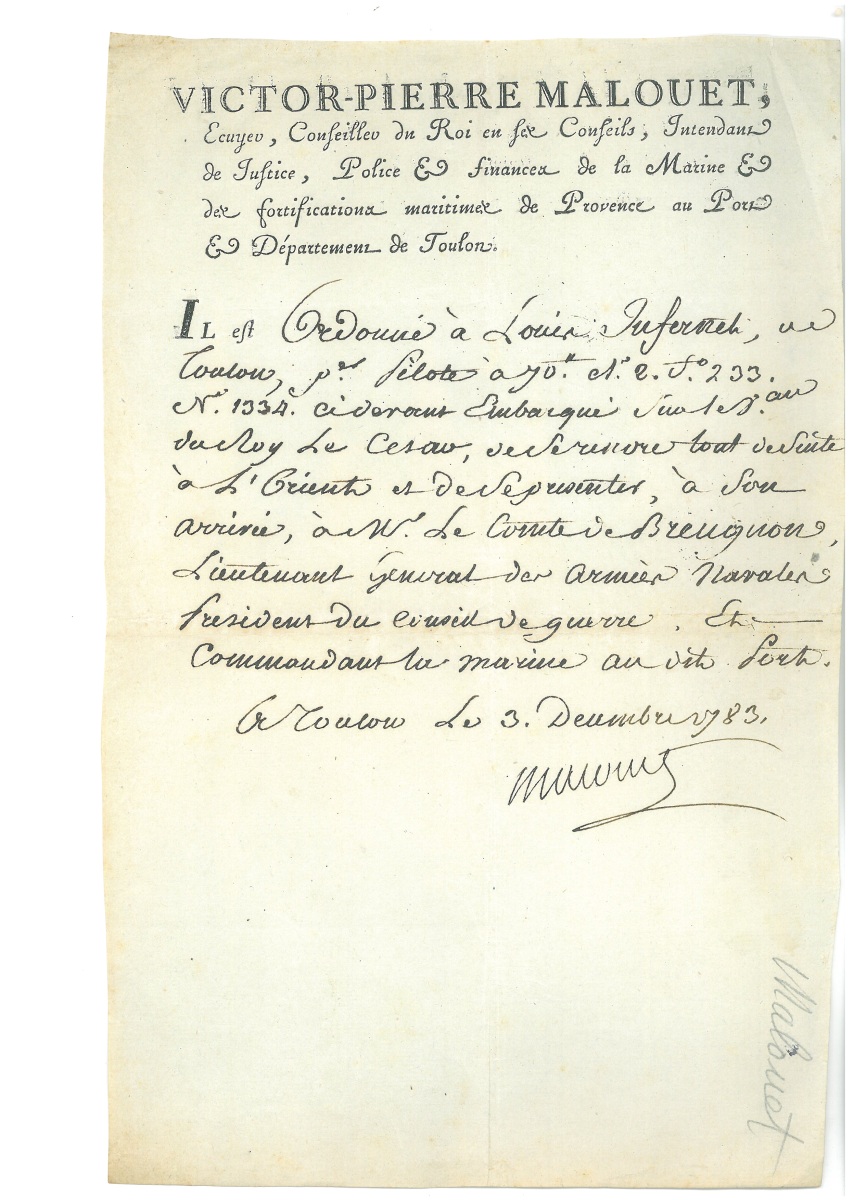 VICTOR-PIERRE MALOUET,
Ecuyer, Conseiller du Roi en ses Conseils, Intendant
de Justice, Police & finances de la Marine &
des fortifications maritimes de Provence au Port
& Département de Toulon.
IL est Ordonné à Louis Infernet, de
Toulon, per. Pilote à 70tt. No. 2. fo. 233.
No. 1334. ci devant Embarqué Sur le Vau
du Roy Le Cesar, de Se rendre tout de Suite
à L'Orient et de Se presenter, à Son
arrivée, à Mr. Le Comte de Breugnon,
Lieutenant General des Armées Navales
President du Conseil de guerre. Et
Commandant la marine au dit Port.
A Toulon Le 3. Decembre 1783.
Malouet
Malouet